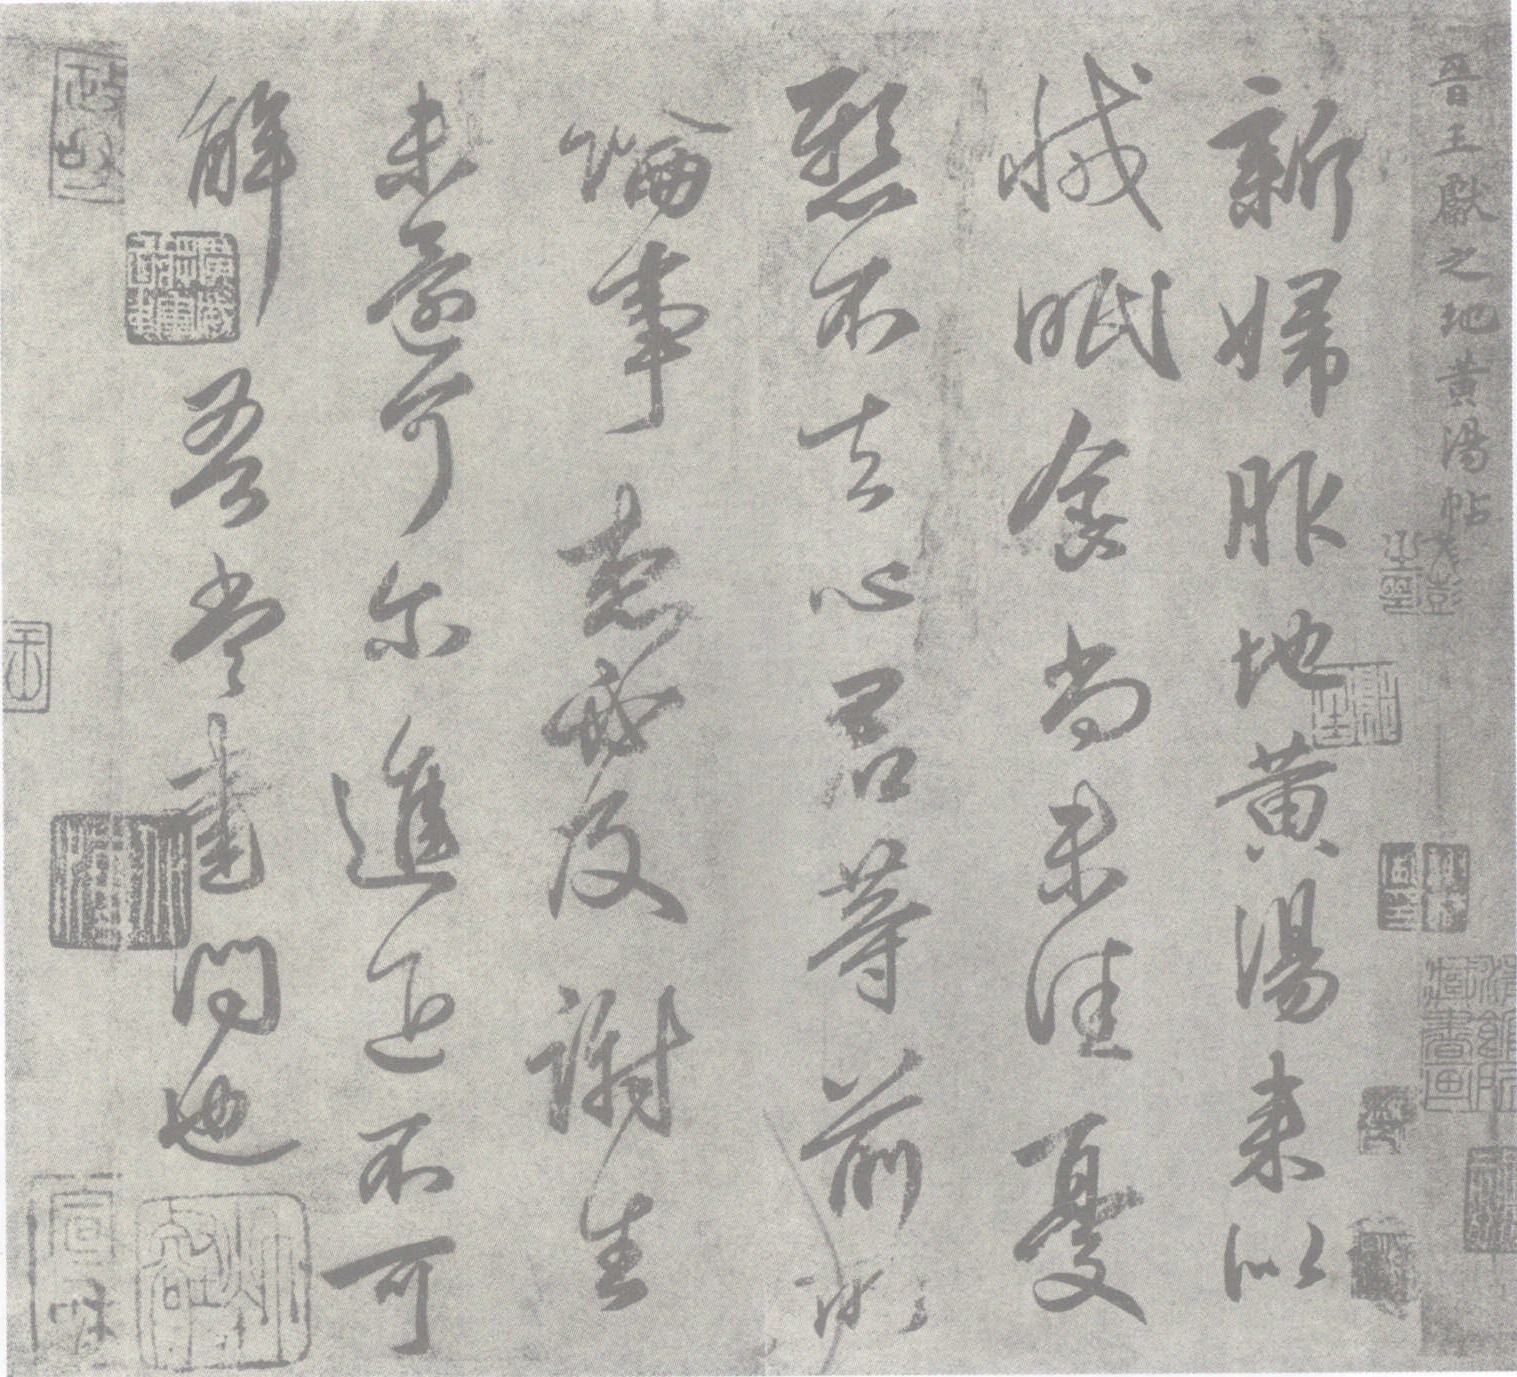 晉王獻之地黃湯帖
新婦服地黃湯来以
減眠食尚未佳憂
懸不去心君等前所
論事想必及謝生
未還可尔進退不可
解吾當書問也
宣和